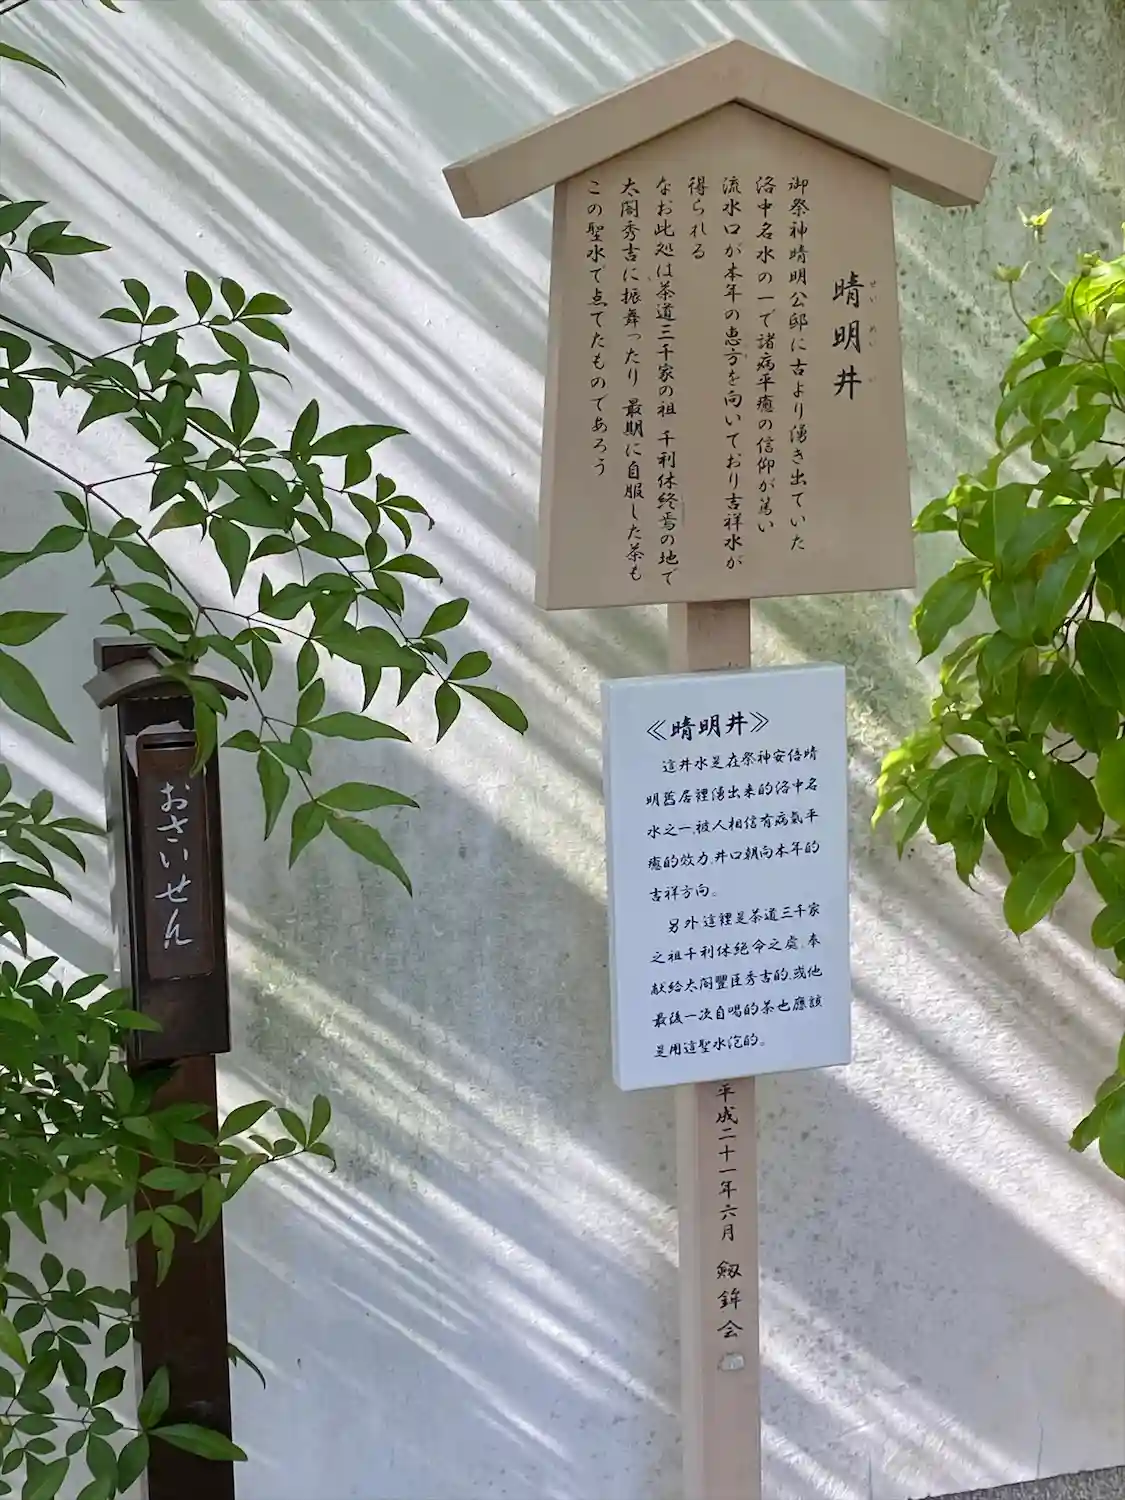 晴明井
せいめいい
御祭神晴明公邸に古より湧き出ていた
洛中名水の一で諸病平癒の信仰が篤い
流水口が本年の恵方を向いており吉祥水が
得られる
なお此処は茶道三千家の祖 千利休終焉の地で
太閤秀吉に振舞ったり 最期に自服した茶も
この聖水で点てたものであろう
《晴明井》
這井水是在祭神安倍晴
明舊居裡湧出来的洛中名
水之一,被人相信有病氣平
癒的效力,井口朝向本年的
吉祥方向。
另外這裡是茶道三千家
之祖千利休絶命之處,奉
献給太閤豐臣秀吉的,或他
最後一次自喝的茶也應該
是用這聖水泡的。
平成二十一年六月 剱鉾会
おさいせん